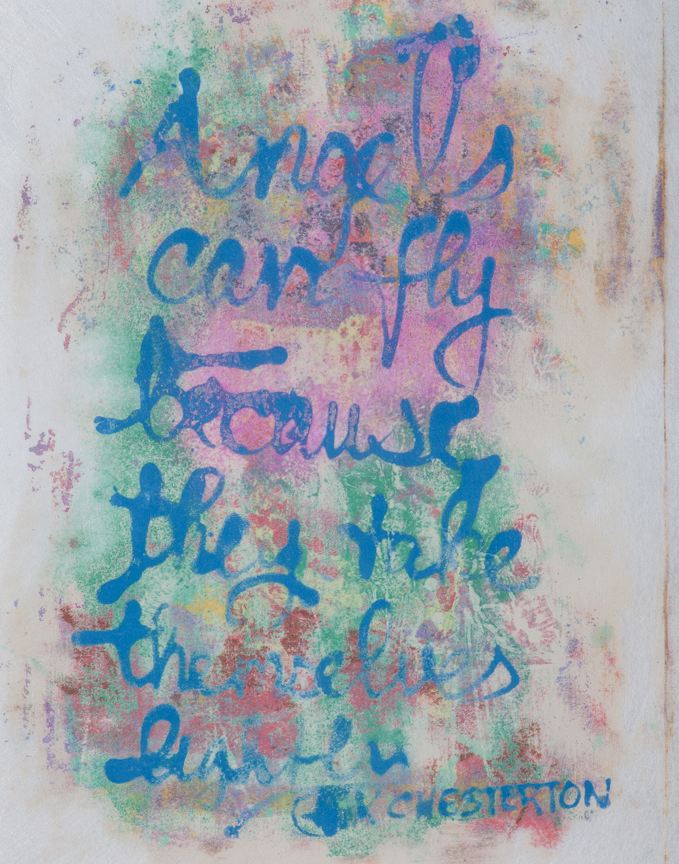 Angels
can fly
because
they take
themselves
G K CHESTERTON